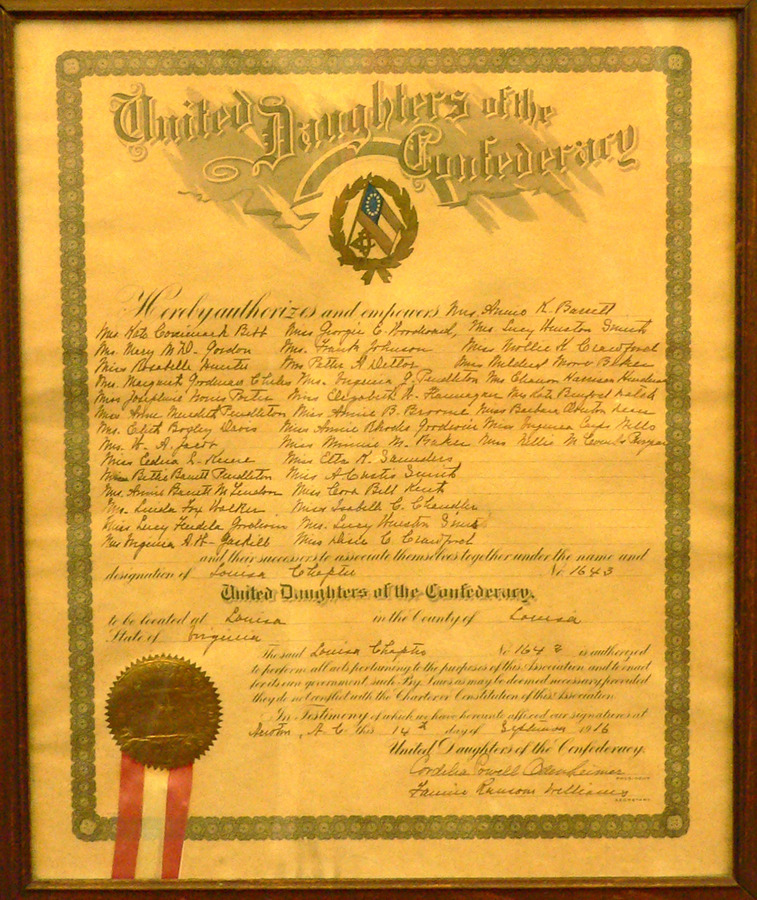 United Daughters of the
Confederacy
Hereby authorizes and empowers Mrs. Annie K. Barrett
Mrs. Kate Bibb Miss Georgie C. Woodward, Mrs. Lucy Huston Smith
Mrs. Mary M. W. Gordon Mrs. Frank Johnson Miss Mollie H Crawford
Miss Rosabelle Hunter Mrs Peter A Dettor Miss Mildred Moore Baker
Mrs. Margaret Goodman Chiles Mrs. Virginia J. Pendleton Mrs Harrison
Miss Josephine Norris Porter Miss Elizabeth K. Flannagan Mrs Kate Walsh
Miss Anne Meredith Pendleton Miss Annie B. Broome Miss Barbara Overton
Mrs. Edith Bagley Davis Miss Annie Rhodes Goodwin Miss Virginia Wells
Mrs. W. A. Jacob Miss Minnie M. Baker Mrs Nellie M.
Miss L. Miss Etta K. Saunders
Miss Bettie Barrett Pendleton Mrs A Curtis Smith
Mrs. Annie Barrett Miss Cora Bell Kent
Mrs. Linda Fox Walker Miss Isabell C. Chandler
Miss Lucy Goodwin Mrs. Lucy Huston Smith
Mrs Virginia A. W. Gaskill Miss C Crawford
and their successors to associate themselves together under the name and
designation of Louisa Chapter No 1643
United Daughters of the Confederacy.
to be located at Louisa in the County of Louisa
State of Virginia
The said Louisa Chapter No 1643 is authorized
to perform all acts pertaining to the purposes of this Association and to enact
for its own government such By-Laws as may be deemed necessary provided
they do not conflict with the Charter or Constitution of this Association.
In Testimony of which we have hereunto affixed our signatures at
N. C. this 14th day of September 1916
United Daughters of the Confederacy.
Cordelia Powell Odenheimer
PRESIDENT
Fannie Ransom Williams
SECRETARY